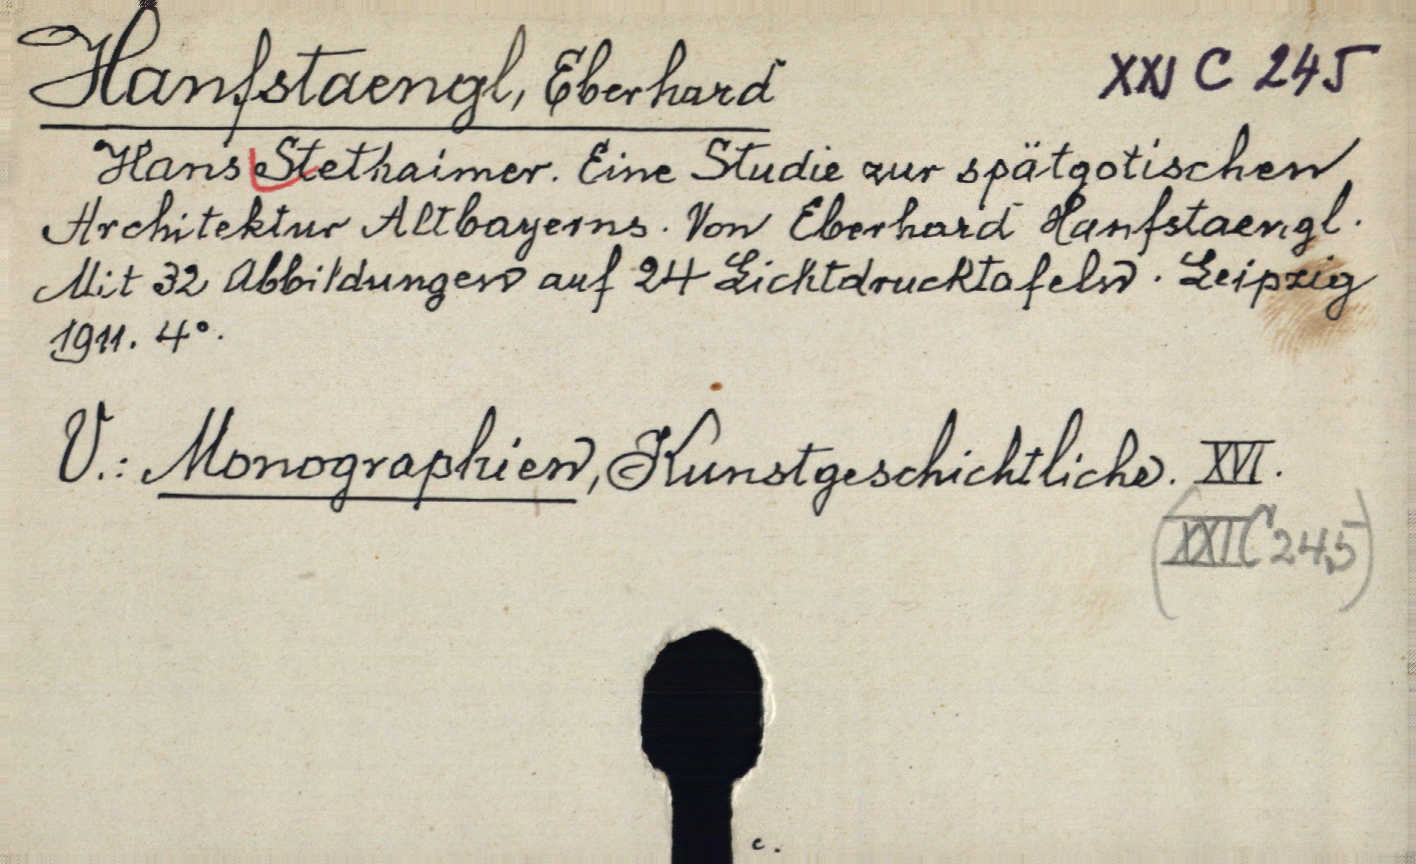 Hanfstaengl, Eberhard
XXI C 245
Hans Stethaimer. Eine Studie zur spätgotischen
Architektur Altbayerns. Von Eberhard Hanfstaengl.
Mit 32 Abbildungen auf 24 Lichtdrucktafeln. Leipzig
1911. 4°.
V.: Monographien, Kunstgeschichtliche. XVI.
(XXI C 245)
c.